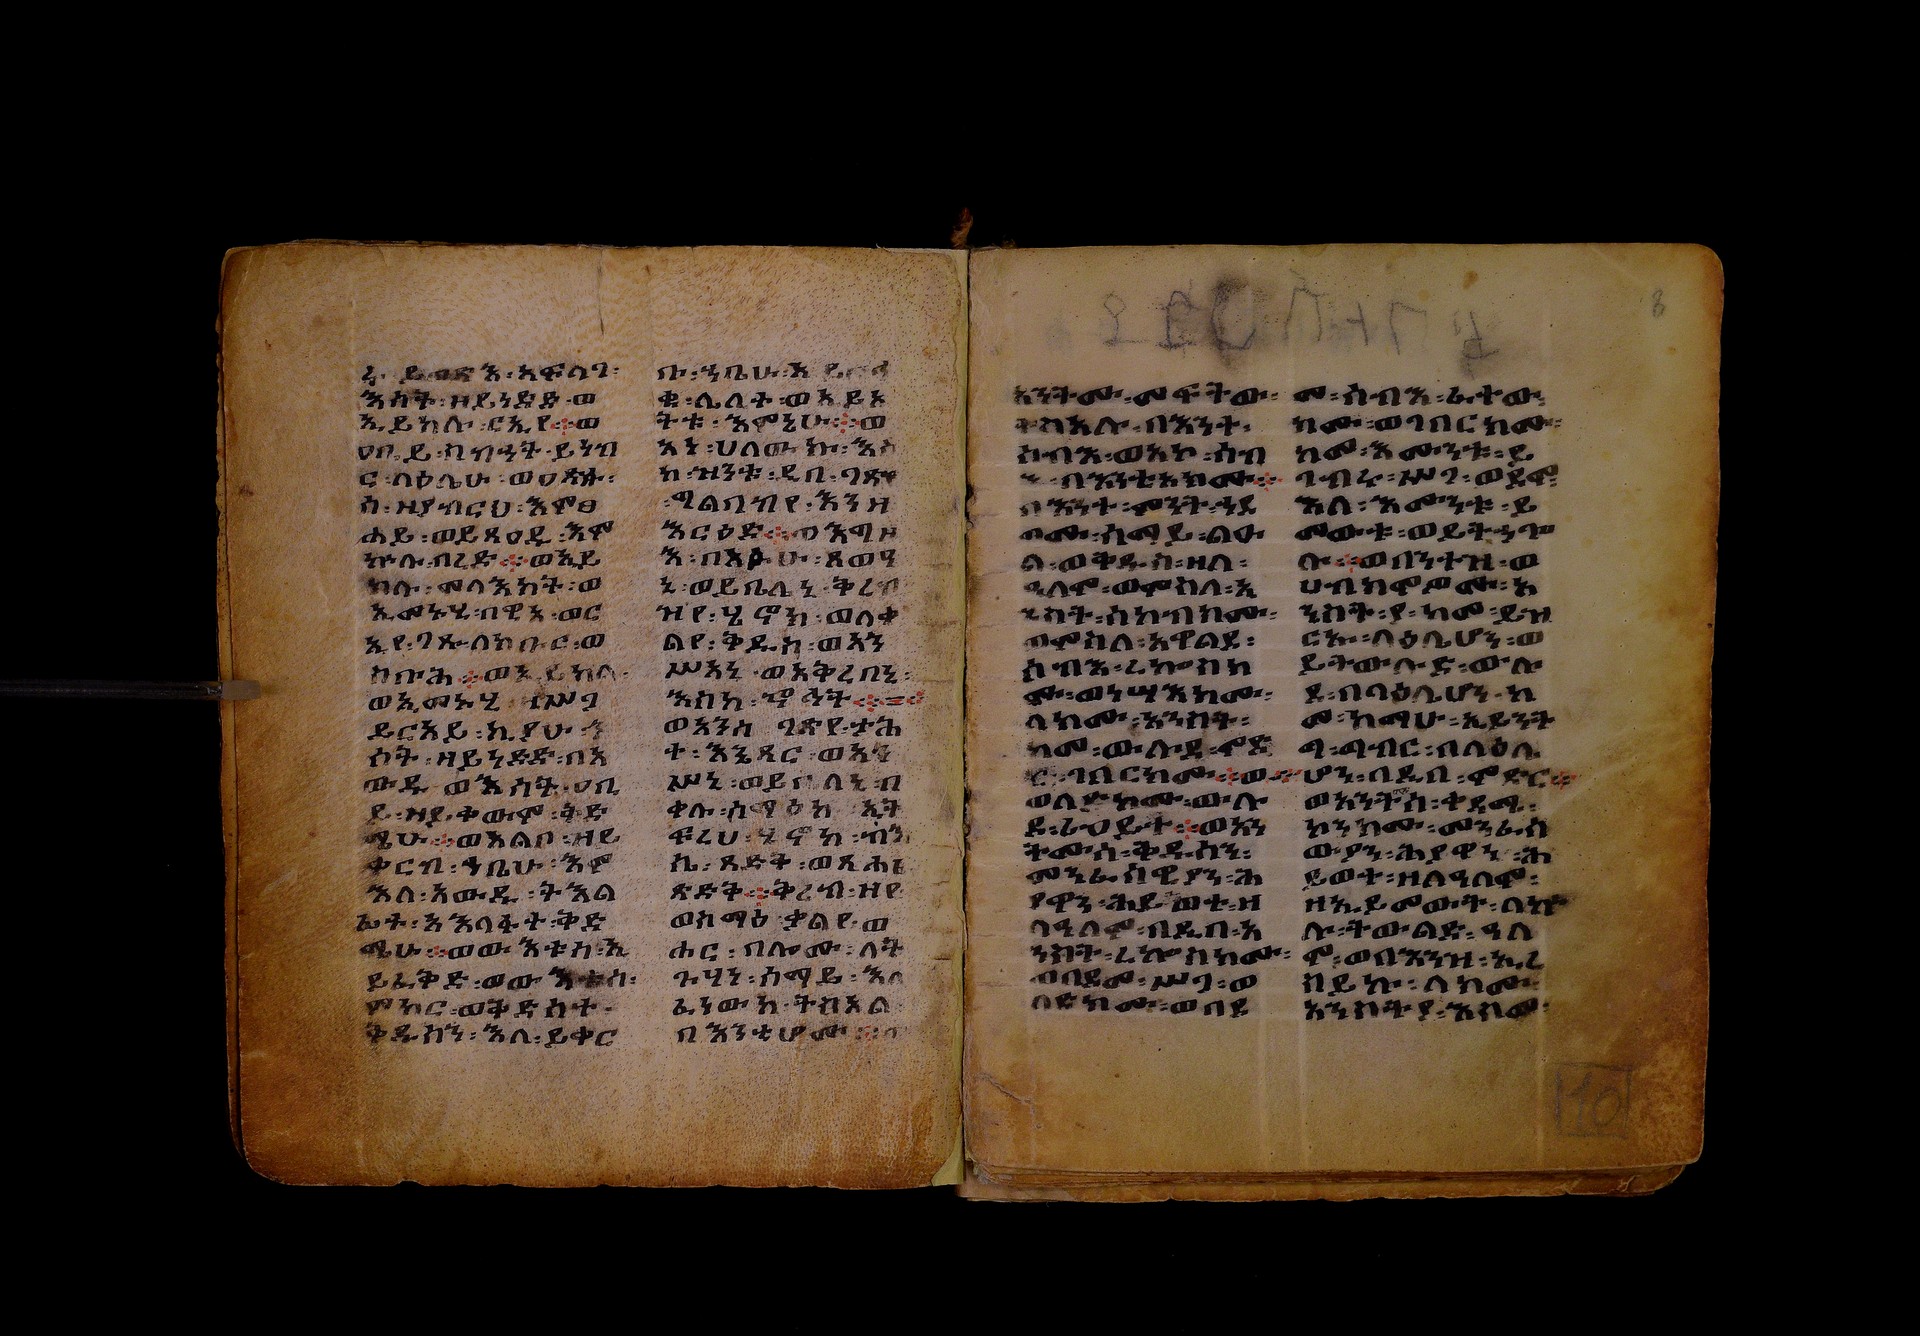 ራ፡ ይወፅእ፡ አፍላገ፡
እሳት፡ ዘይነድድ፡ ወ
ኢይክሉ፡ ርእየ። ወ
ዐቢይ፡ ስብሓት፡ ይነብ
ር፡ ላዕሌሁ፡ ወዐጽፉ፡
ሰ፡ ዘያበርህ፡ እምፀ
ሐይ፡ ወይጸዐዱ፡ እም
ኵሉ፡ በረድ። ወኢይ
ክሉ፡ መላእክት፡ ወ
ኢመኑሂ፡ በዊአ፡ ወር
እየ፡ ገጹ፡ ለክቡር፡ ወ
ስቡሕ። ወኢይክል፡
ወኢመኑሂ፡ ዘሥጋ
ይርአይ፡ ኪያሁ፡ እ
ሳት፡ ዘይነድድ፡ በአ
ውዱ፡ ወእሳት፡ ዐቢ
ይ፡ ዘይቀውም፡ ቅድ
ሜሁ። ወአልቦ፡ ዘይ
ቀርብ፡ ኀቤሁ፡ እም
እለ፡ አውዱ፡ ትእል
ፊት፡ አእላፋት፡ ቅድ
ሜሁ። ወውእቱሰ፡ ኢ
ይፈቅድ፡ ወውእቱሰ፡
ምክር፡ ወቅድሳተ፡
ቅዱሳን፡ እለ፡ ይቀር
ቡ፡ ኀቤሁ፡ ኢይርኅ
ቁ፡ ሌሊተ፡ ወኢይእ
ትቱ፡ እምኔሁ። ወ
አነ፡ ሀለውኩ፡ እስ
ከ፡ ዝንቱ፡ ዲበ፡ ገጽየ
፡ ግልባቤየ፡ እንዘ
እርዕድ። ወእግዚ
እ፡ በአፉሁ፡ ጸወዓ
ኒ፡ ወይቤለኒ፡ ቅረብ
ዝየ፡ ሄኖክ፡ ወለቃ
ልየ፡ ቅዱስ፡ ወአን
ሥአኒ፡ ወአቅረበኒ፡
እስከ፡ ኆኅት።
ወአንሰ፡ ገጽየ፡ ታሕ
ተ፡ እኔጽር፡ ወአው
ሥአኒ፡ ወይቤለኒ፡ በ
ቃሉ፡ ስማዕከ፡ ኢት
ፍራህ፡ ሄኖክ፡ ብእ
ሲ፡ ጻድቅ፡ ወጸሐፌ
ጽድቅ። ቅረብ፡ ዝየ
ወስማዕ፡ ቃልየ፡ ወ
ሑር፡ በሎሙ፡ ለት
ጉሃነ፡ ሰማይ፡ እለ
ፈነውከ፡ ትስአል
በእንቲሆሙ፡
8
አንትሙ፡ መፍትው፡
ትስአሉ፡ በእንተ፡
ሰብእ፡ ወአኮ፡ ሰብ
እ፡ በእንቲአክሙ።
በእንተ፡ ምንት፡ ኀደ
ግሙ፡ ሰማየ፡ ልዑ
ለ፡ ወቅዱሰ፡ ዘለ
ዓለም፡ ወምስለ፡ አ
ንስት፡ ሰከብክሙ፡
ወምስለ፡ አዋልደ፡
ሰብእ፡ ረኰስክ
ሙ፡ ወነሣእክሙ፡
ለክሙ፡ አንስተ፡
ከመ፡ ውሉደ፡ ምድ
ር፡ ገበርክሙ። ወ
ወለድክሙ፡ ውሉ
ደ፡ ረዐይተ። ወአን
ትሙሰ፡ ቅዱሳን፡
መንፈሳዊያን፡ ሕ
ያዋን፡ ሕይወተ፡ ዘ
ለዓለም፡ በዲበ፡ አ
ንስት፡ ረኰስክሙ፡
ወበደመ፡ ሥጋ፡ ወ
ለድክሙ፡ ወበደ
መ፡ ሰብእ፡ ፈተው
ክሙ፡ ወገበርክሙ፡
ከመ፡ እሙንቱ፡ ይ
ገብሩ፡ ሥጋ፡ ወደመ
እለ፡ እሙንቱ፡ ይ
መውቱ፡ ወይትኃጐ
ሉ። ወበእንተዝ፡ ወ
ሀብክምዎሙ፡ አ
ንስት፡ ያ፡ ከመ፡ ይዝ
ርኡ፡ ላዕሌሆን፡ ወ
ይትወለድ፡ ውሉ
ደ፡ በላዕሌሆን፡ ከ
መ፡ ከማሁ፡ ኢይንት
ግ፡ ግብር፡ በላዕሌ
ሆን፡ በዲበ፡ ምድር።
ወአንትሙሰ፡ ቀዳሚ፡
ኮንክሙ፡ መንፈሳ
ውያን፡ ሕያዋን፡ ሕ
ይወተ፡ ዘለዓለም፡
ዘኢይመውት፡ ለኵ
ሉ፡ ትውልደ፡ ዓለ
ም፡ ወበእንዝ፡ ኢረ
ሰይኩ፡ ለክሙ፡
አንስትያ፡ እስመ፡
10